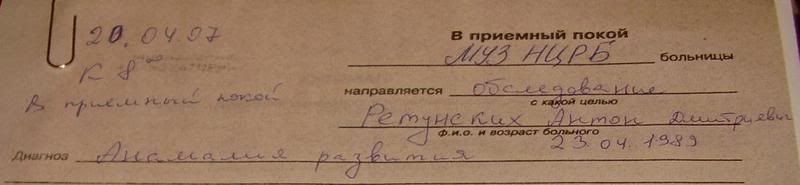 20.04.07
К 8⁰⁰
В приемный покой
В приемный покой
МУЗ НЦРБ больницы
направляется обследование
с какой целью
Ретунских Антон Дмитриевич
ф.и.о. и возраст больного
23.04.1989
Диагноз Анамалия развития